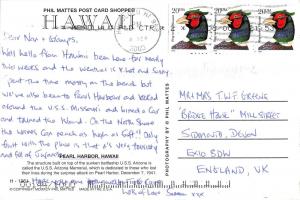 PHIL MATTES POST CARD SHOPPE
HAWAII
2003
20 USA
20 USA
20 USA
Dear Nan + Gramps,
Well hello from Hawaii been here for nearly
two weeks and the weather is hot and sunny
spent the time mostly on the beach but
we've also been to Pearl Harbour and looked
around the U.S.S. Missouri and hired a car
and toured the Island. On the North Shore
the waves can reach as high as 40ft! Only
fault with the place is that it's very touristy
and full of Japanese
PEARL HARBOR, HAWAII
The structure built on top of the sunken battleship U.S.S. Arizona is
called the U.S.S. Arizona Memorial, which is dedicated to those who lost their
lives during the surprise attack on Pearl Harbor, December 7, 1941.
Lots of Love
MR/MRS TWF GREENE
"BRIDGE HOUSE" MILL STREET
SIDMOUTH, DEVON
EX10 8DW
ENGLAND, UK